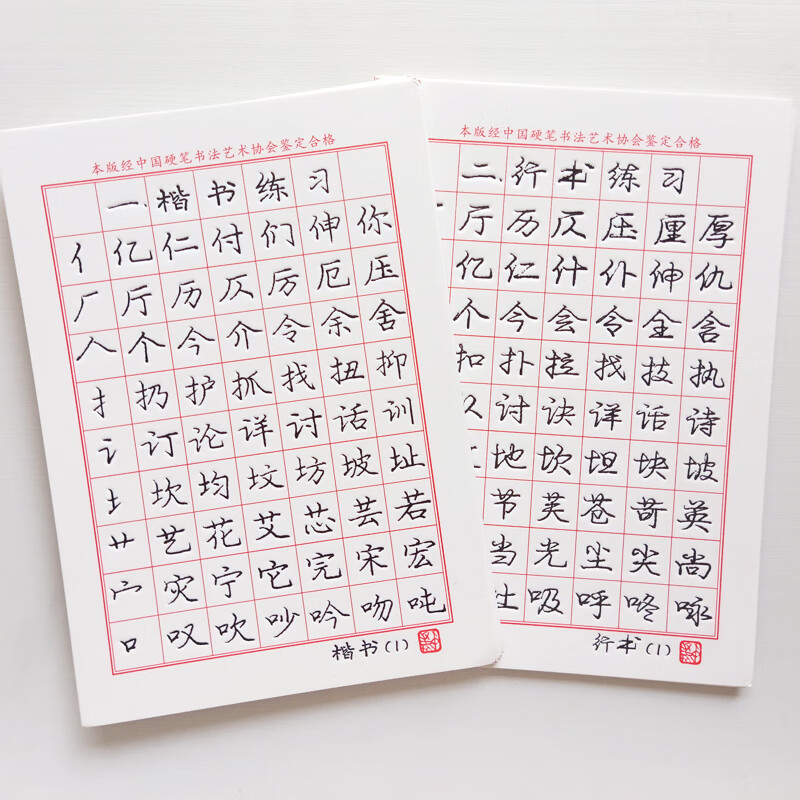 本版经中国硬笔书法艺术协会鉴定合格
一.楷书练习
亻亿仁付们伸你
厂厅历仄厉厄压
人个今介令余舍
扌扔护抓找扭抑
讠订论详讨话训
土坎均坟坊坡址
艹艺花艾芯芸若
宀灾宁它完宋宏
口叹吹吵吟吻吨
楷书(1)
本版经中国硬笔书法艺术协会鉴定合格
二.行书练习
厅历仄压厘厚
亿仁什仆伸仇
个今会令全含
扣扑拉找技执
讨诀详话诗
地坎坦块坡
节芙苍苛英
当光尘尖尚
吐吸呼咚咏
行书(1)